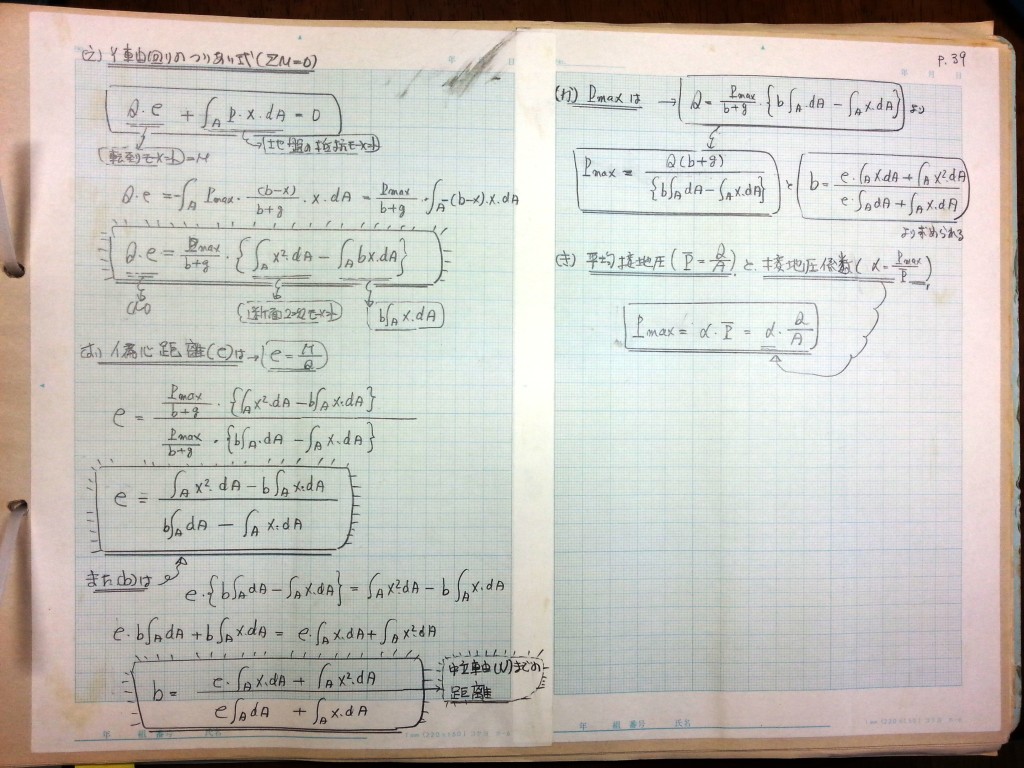 P.39
Y軸回りのつりあい式(ΣM=0)
Q・e + ∫A P・x・dA = 0
転倒モーメント = M
地盤の抵抗モーメント
Q・e = -∫A Pmax・(b-x)/(b+g)・x・dA = Pmax/(b+g)・∫A -(b-x)・x・dA
Q・e = Pmax/(b+g)・{∫A x²・dA - ∫A bx・dA}
断面2次モーメント
b∫A x・dA
偏心距離(e)は→ e = M/Q
e = Pmax/(b+g)・{∫A x²・dA - b∫A x・dA} / Pmax/(b+g)・{b∫A・dA - ∫A x・dA}
e = (∫A x²・dA - b∫A x・dA) / (b∫A dA - ∫A x・dA)
また(b)は
e・{b∫A dA - ∫A x・dA} = ∫A x²dA - b∫A x・dA
e・b∫A dA + b∫A x・dA = e・∫A x・dA + ∫A x²・dA
b = (e・∫A x・dA + ∫A x²・dA) / (e∫A dA + ∫A x・dA)
中立軸(N)までの
距離
(カ) Pmaxは → Q = Pmax/(b+g)・{b∫A・dA - ∫A x・dA} より
Pmax = Q(b+g) / {b∫A dA - ∫A x・dA} と b = (e・∫A x・dA + ∫A x²dA) / (e・∫A dA + ∫A x・dA)
より求められる
(キ) 平均接地圧(P̄ = Q/A)と接地圧係数(α = Pmax/P̄)
Pmax = α・P̄ = α・Q/A
年 組 番号 氏名
年 組 番号 氏名